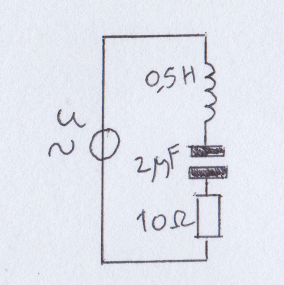 0,5H
u
~
2µF
10Ω